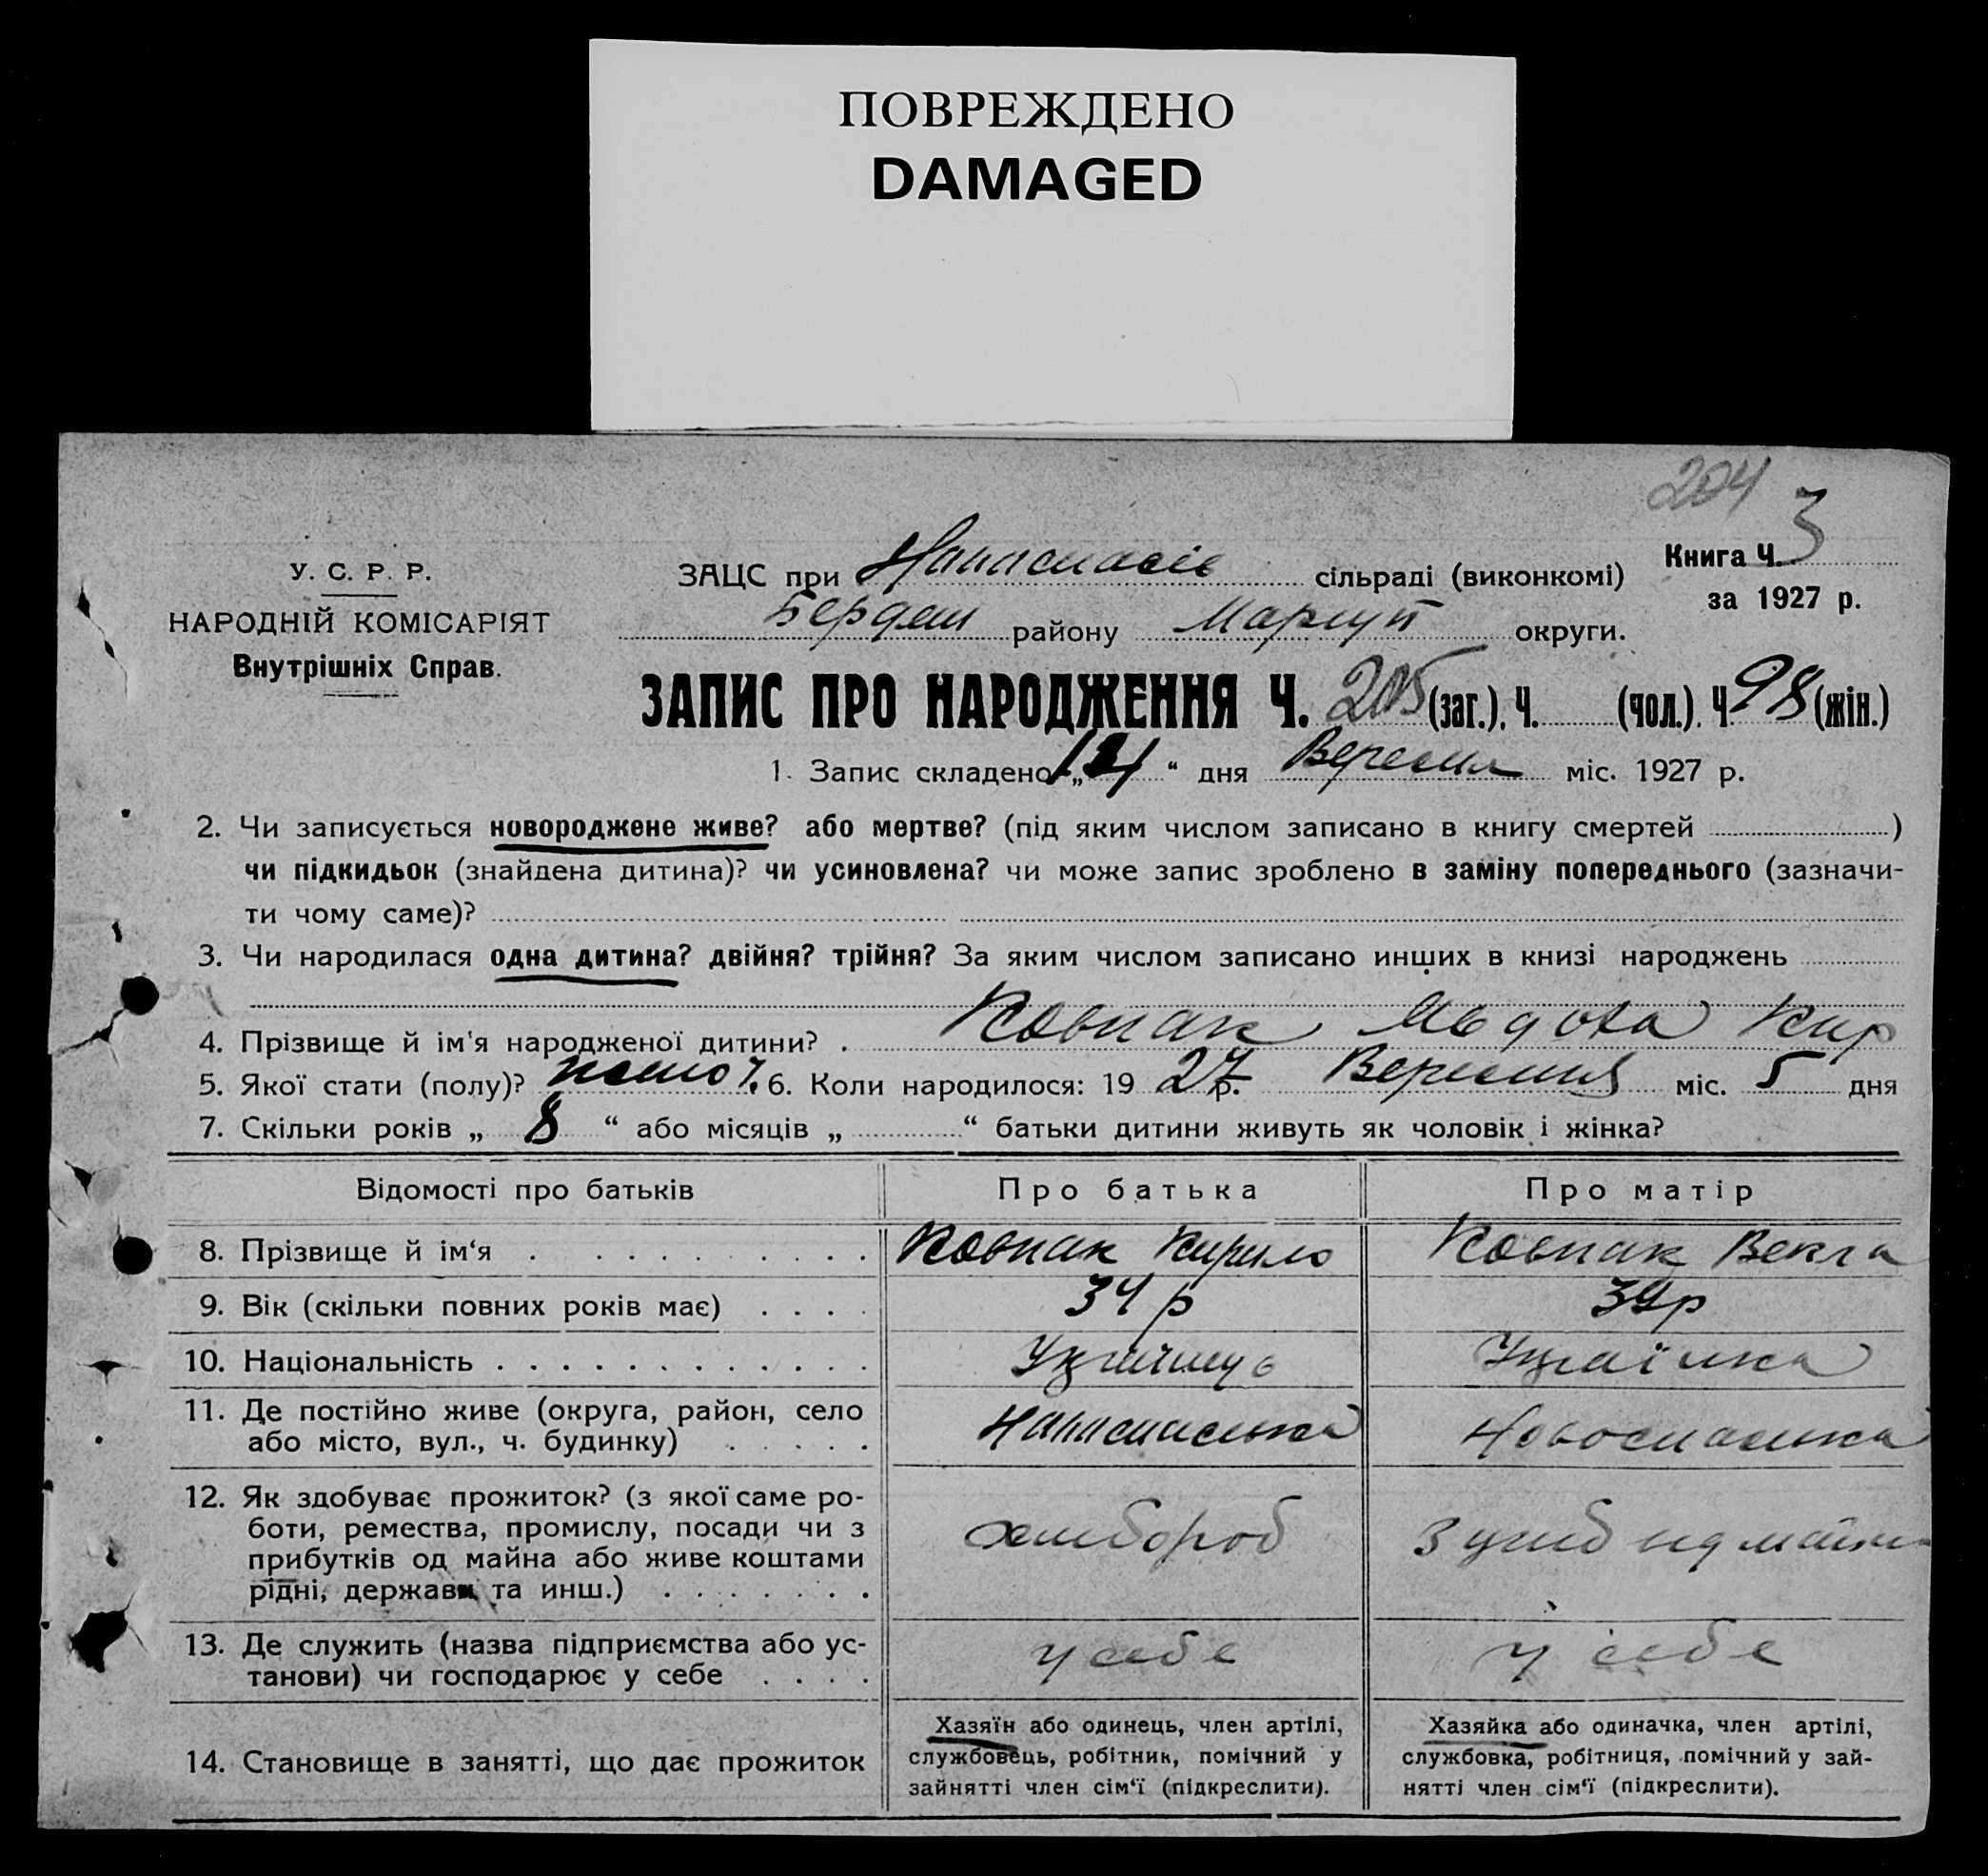 ПОВРЕЖДЕНО
DAMAGED
204
У. С. Р. Р.
НАРОДНІЙ КОМІСАРІЯТ
Внутрішніх Справ.
ЗАЦС при сільраді (виконкомі)
Книга Ч. 3
за 1927 р.
району округи.
ЗАПИС ПРО НАРОДЖЕННЯ Ч. 205 (заг.), Ч. (чол.). Ч. 98 (жін.)
1. Запис складено „ “ дня Вересня міс. 1927 р.
2. Чи записується новороджене живе? або мертве? (під яким числом записано в книгу смертей )
чи підкидьок (знайдена дитина)? чи усиновлена? чи може запис зроблено в заміну попереднього (зазначи-
ти чому саме)?
3. Чи народилася одна дитина? двійня? трійня? За яким числом записано инших в книзі народжень
4. Прізвище й ім'я народженої дитини? Ковпак Кир
5. Якої стати (полу)? 6. Коли народилося: 1927 р. Вересния міс. 5 дня
7. Скільки років „ 8 “ або місяців „ “ батьки дитини живуть як чоловік і жінка?
Відомості про батьків Про батька Про матір
8. Прізвище й ім‘я Ковпак Кирило Ковпак Векла
9. Вік (скільки повних років має) 34 р р
10. Національність Украінка
11. Де постійно живе (округа, район, село
або місто, вул., ч. будинку) Новоспаська
12. Як здобуває прожиток? (з якої саме ро-
боти, ремества, промислу, посади чи з
прибутків од майна або живе коштами
рідні, держави та инш.) хлибороб
13. Де служить (назва підприємства або ус-
танови) чи господарює у себе у себе у себе
14. Становище в занятті, що дає прожиток
Хазяїн або одинець, член артілі,
службовець, робітник, помічний у
зайнятті член сім‘ї (підкреслити).
Хазяйка або одиначка, член артілі,
службовка, робітниця, помічний у зай-
нятті член сім‘ї (підкреслити).